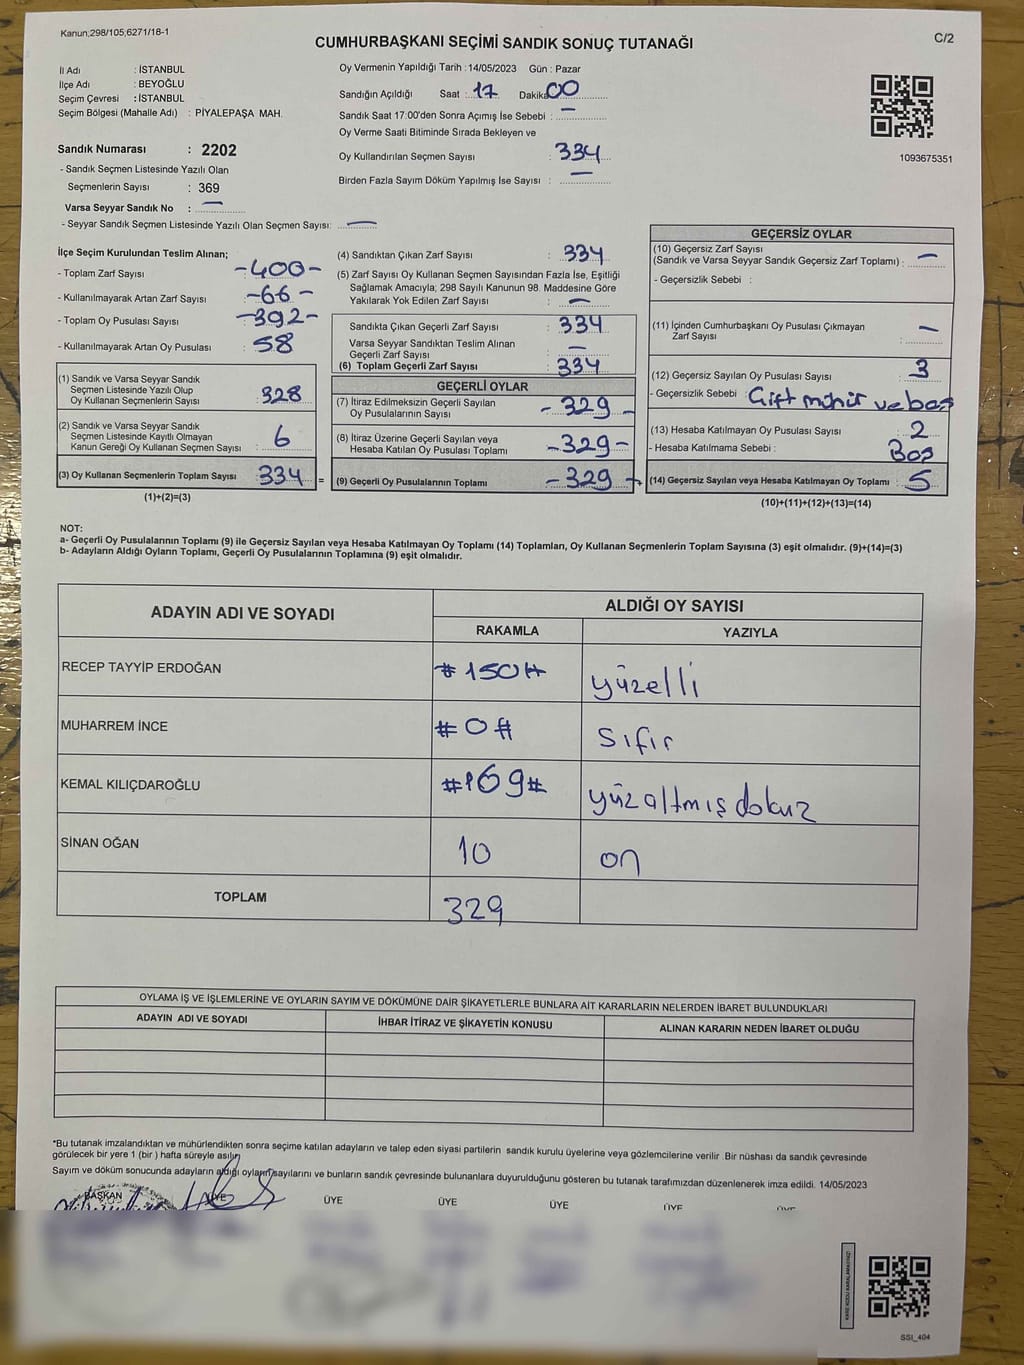 Kanun;298/105;6271/18-1
C/2
CUMHURBAŞKANI SEÇİMİ SANDIK SONUÇ TUTANAĞI
İl Adı : İSTANBUL
İlçe Adı : BEYOĞLU
Seçim Çevresi : İSTANBUL
Seçim Bölgesi (Mahalle Adı) : PİYALEPAŞA MAH.
Sandık Numarası : 2202
- Sandık Seçmen Listesinde Yazılı Olan
Seçmenlerin Sayısı : 369
Varsa Seyyar Sandık No : —
- Seyyar Sandık Seçmen Listesinde Yazılı Olan Seçmen Sayısı: —
Oy Vermenin Yapıldığı Tarih : 14/05/2023 Gün : Pazar
Sandığın Açıldığı Saat : 17 Dakika 00
Sandık Saat 17:00'den Sonra Açımış İse Sebebi : —
Oy Verme Saati Bitiminde Sırada Bekleyen ve
Oy Kullandırılan Seçmen Sayısı : 334
Birden Fazla Sayım Döküm Yapılmış İse Sayısı : —
1093675351
İlçe Seçim Kurulundan Teslim Alınan;
- Toplam Zarf Sayısı -400-
- Kullanılmayarak Artan Zarf Sayısı -66-
- Toplam Oy Pusulası Sayısı -392-
- Kullanılmayarak Artan Oy Pusulası : 58
(1) Sandık ve Varsa Seyyar Sandık
Seçmen Listesinde Yazılı Olup
Oy Kullanan Seçmenlerin Sayısı : 328
(2) Sandık ve Varsa Seyyar Sandık
Seçmen Listesinde Kayıtlı Olmayan
Kanun Gereği Oy Kullanan Seçmen Sayısı : 6
(3) Oy Kullanan Seçmenlerin Toplam Sayısı : 334 =
(1)+(2)=(3)
(4) Sandıktan Çıkan Zarf Sayısı : 334
(5) Zarf Sayısı Oy Kullanan Seçmen Sayısından Fazla İse, Eşitliği
Sağlamak Amacıyla; 298 Sayılı Kanunun 98. Maddesine Göre
Yakılarak Yok Edilen Zarf Sayısı : —
Sandıkta Çıkan Geçerli Zarf Sayısı : 334
Varsa Seyyar Sandıktan Teslim Alınan
Geçerli Zarf Sayısı : —
(6) Toplam Geçerli Zarf Sayısı : 334
GEÇERLİ OYLAR
(7) İtiraz Edilmeksizin Geçerli Sayılan
Oy Pusulalarının Sayısı : -329-
(8) İtiraz Üzerine Geçerli Sayılan veya
Hesaba Katılan Oy Pusulası Toplamı : -329-
(9) Geçerli Oy Pusulalarının Toplamı : -329 +
GEÇERSİZ OYLAR
(10) Geçersiz Zarf Sayısı
(Sandık ve Varsa Seyyar Sandık Geçersiz Zarf Toplamı) : —
- Geçersizlik Sebebi :
(11) İçinden Cumhurbaşkanı Oy Pusulası Çıkmayan
Zarf Sayısı : —
(12) Geçersiz Sayılan Oy Pusulası Sayısı : 3
- Geçersizlik Sebebi : Çift mühür ve boş
(13) Hesaba Katılmayan Oy Pusulası Sayısı : 2
- Hesaba Katılmama Sebebi : Boş
(14) Geçersiz Sayılan veya Hesaba Katılmayan Oy Toplamı : 5
(10)+(11)+(12)+(13)=(14)
NOT:
a- Geçerli Oy Pusulalarının Toplamı (9) ile Geçersiz Sayılan veya Hesaba Katılmayan Oy Toplamı (14) Toplamları, Oy Kullanan Seçmenlerin Toplam Sayısına (3) eşit olmalıdır. (9)+(14)=(3)
b- Adayların Aldığı Oyların Toplamı, Geçerli Oy Pusulalarının Toplamına (9) eşit olmalıdır.
ADAYIN ADI VE SOYADI ALDIĞI OY SAYISI
RAKAMLA YAZIYLA
RECEP TAYYİP ERDOĞAN #150# yüzelli
MUHARREM İNCE #0# sıfır
KEMAL KILIÇDAROĞLU #169# yüzaltmış dokuz
SİNAN OĞAN 10 on
TOPLAM 329
OYLAMA İŞ VE İŞLEMLERİNE VE OYLARIN SAYIM VE DÖKÜMÜNE DAİR ŞİKAYETLERLE BUNLARA AİT KARARLARIN NELERDEN İBARET BULUNDUKLARI
ADAYIN ADI VE SOYADI İHBAR İTİRAZ VE ŞİKAYETİN KONUSU ALINAN KARARIN NEDEN İBARET OLDUĞU
*Bu tutanak imzalandıktan ve mühürlendikten sonra seçime katılan adayların ve talep eden siyasi partilerin sandık kurulu üyelerine veya gözlemcilerine verilir .Bir nüshası da sandık çevresinde
görülecek bir yere 1 (bir ) hafta süreyle asılır.
Sayım ve döküm sonucunda adayların aldığı oyların sayılarını ve bunların sandık çevresinde bulunanlara duyurulduğunu gösteren bu tutanak tarafımızdan düzenlenerek imza edildi. 14/05/2023
BAŞKAN ÜYE ÜYE ÜYE ÜYE ÜYE ÜYE
KARE KODU KARALAMAYINIZ!
SSI_404